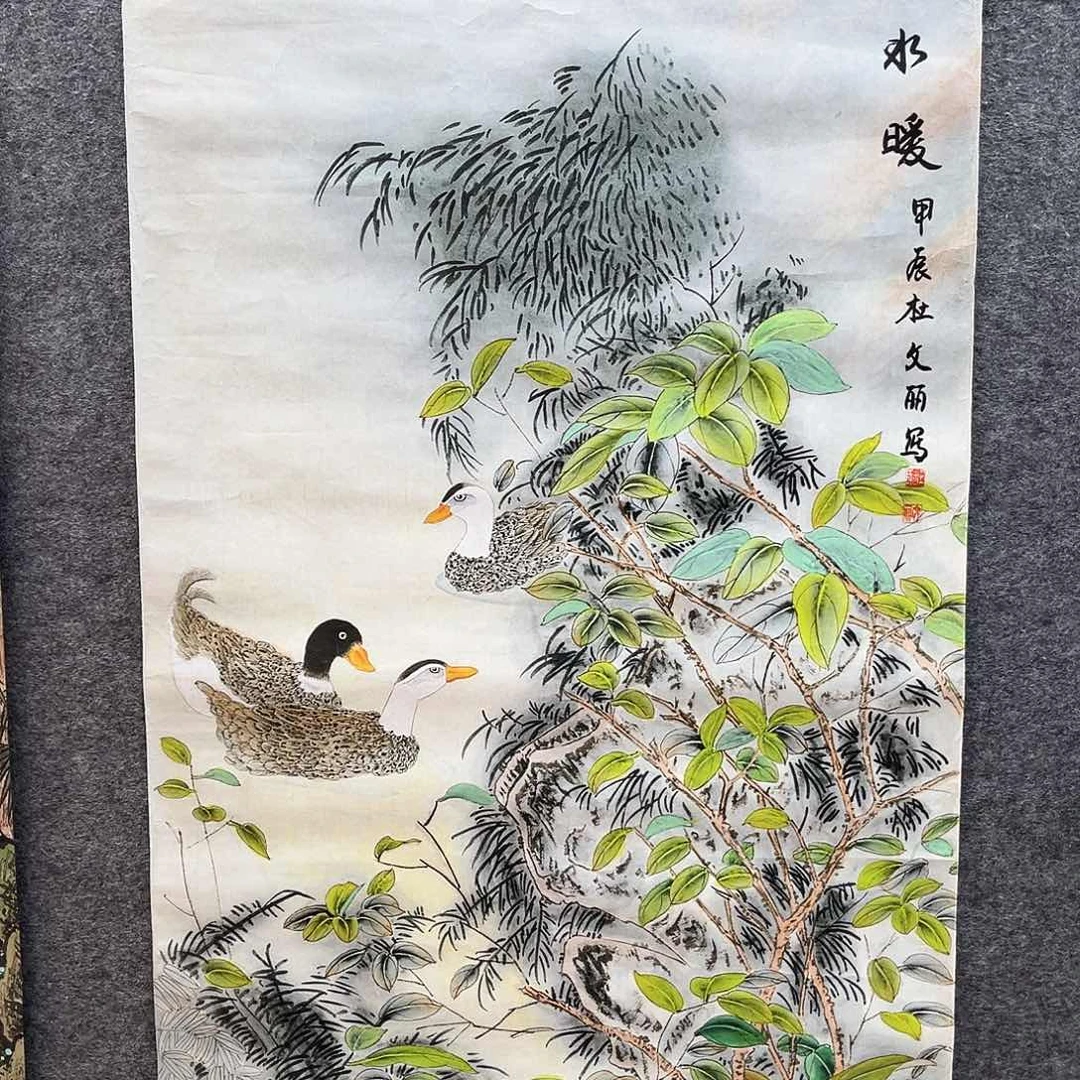 水暖
甲辰杜文丽写